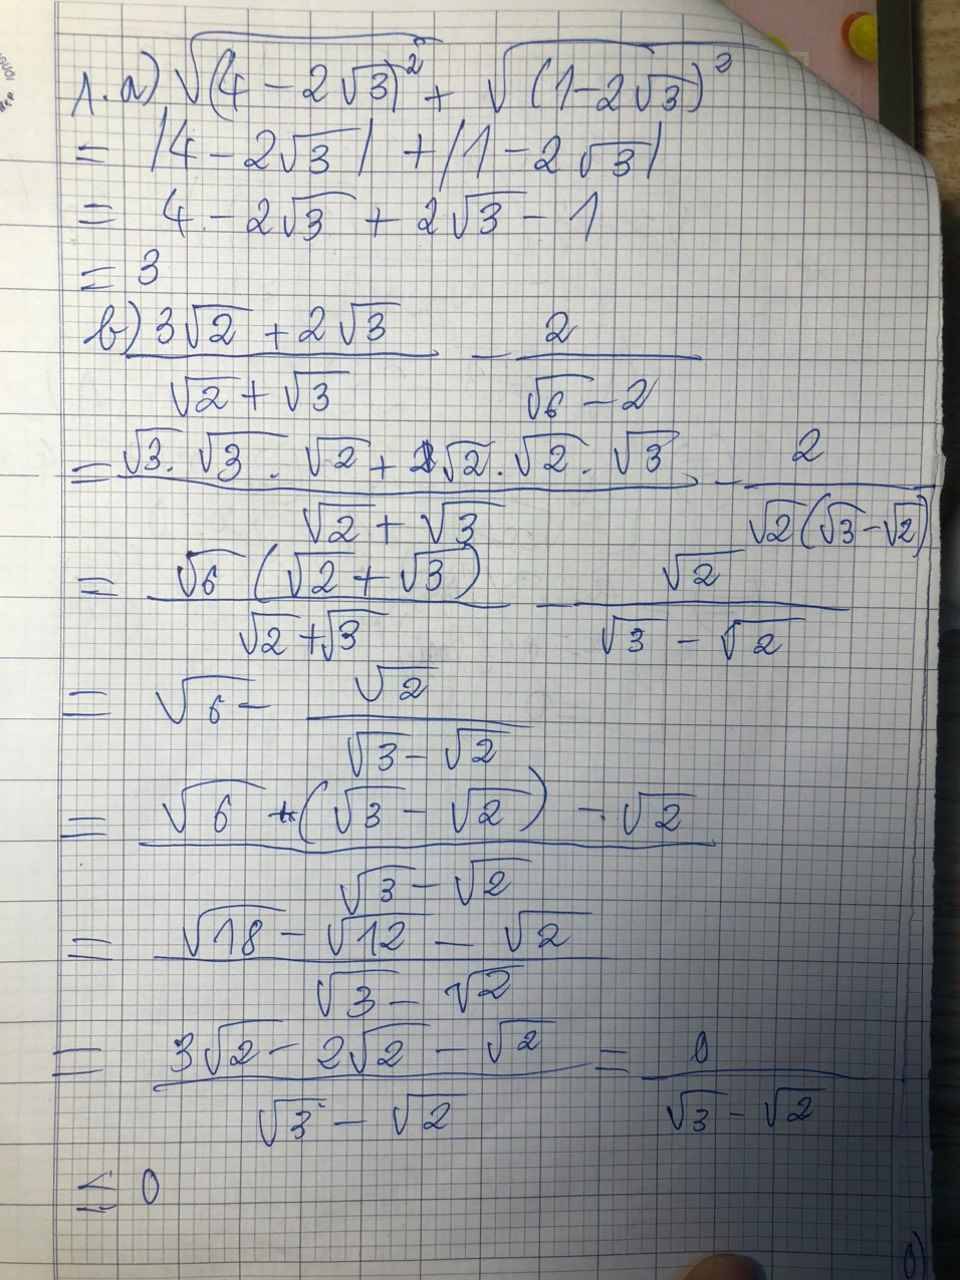 1. a) √(4 - 2√3)² + √(1 - 2√3)²
= |4 - 2√3| + |1 - 2√3|
= 4 - 2√3 + 2√3 - 1
= 3
b) (3√2 + 2√3)/(√2 + √3) - 2/(√6 - 2)
= (√3 . √3 . √2 + √2 . √2 . √3)/(√2 + √3) - 2/(√2(√3 - √2))
= √6 (√2 + √3)/(√2 + √3) - √2/(√3 - √2)
= √6 - √2/(√3 - √2)
= (√6 (√3 - √2) - √2)/(√3 - √2)
= (√18 - √12 - √2)/(√3 - √2)
= (3√2 - 2√2 - √2)/(√3 - √2) = 0/(√3 - √2)
= 0